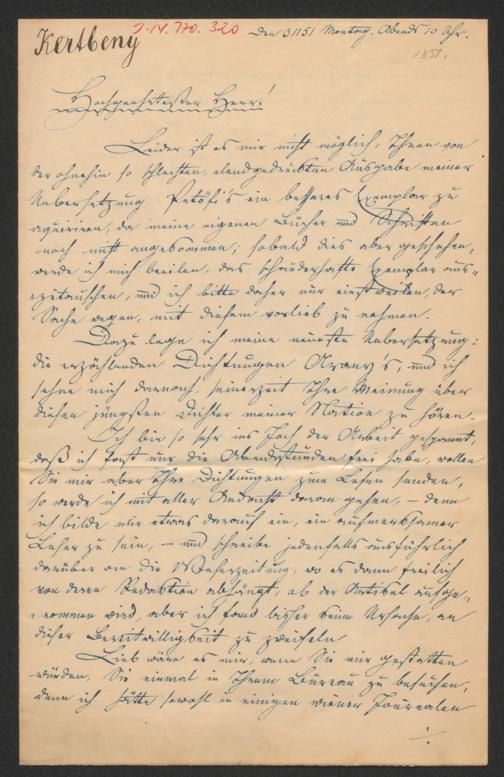 Kertbeny
I.N. 170.320
Den 31 1 51 Montag, Abends 10 Uhr.
1851.
Hochgeehrtester Herr!
Leider ist es mir nicht möglich, Ihnen von
der ohnehin so schlechten, elendgedruckten Ausgabe meiner
Uebersetzung Petőfi's ein besseres Exemplar zu
aquiriren, da meine eigenen Bücher und Schriften
noch nicht angekommen; sobald dies aber geschehen,
werde ich mich beeilen, das schauderhafte Exemplar aus-
zutauschen, und ich bitte daher nur einstweilen, der
Sache wegen, mit diesem vorlieb zu nehmen.
Dazu lege ich meine neueste Uebersetzung:
die erzählenden Dichtungen Arany's, und ich
sehne mich darnach, seinerzeit Ihre Meinung über
diesen jüngsten Dichter meiner Nation zu hören.
Ich bin so sehr ins Joch der Arbeit gespannt,
daß ich fast nur die Abendstunden frei habe, wollen
Sie mir aber Ihre Dichtungen zum Lesen senden,
so werde ich mit aller Andacht daran gehen, – denn
ich bilde mir etwas darauf ein, ein aufmerksamer
Leser zu sein, – und schreibe jedenfalls ausführlich
darüber an die Weserzeitung, wo es dann freilich
von deren Redaktion abhängt, ob der Artikel aufge-
nommen wird, aber ich fand bisher keine Ursache, an
dieser Bereitwilligkeit zu zweifeln
Lieb wäre es mir, wenn Sie mir gestatten
würden, Sie einmal in Ihrem Bureau zu besuchen,
denn ich hätte sowohl in einigen wiener Journalen
./.